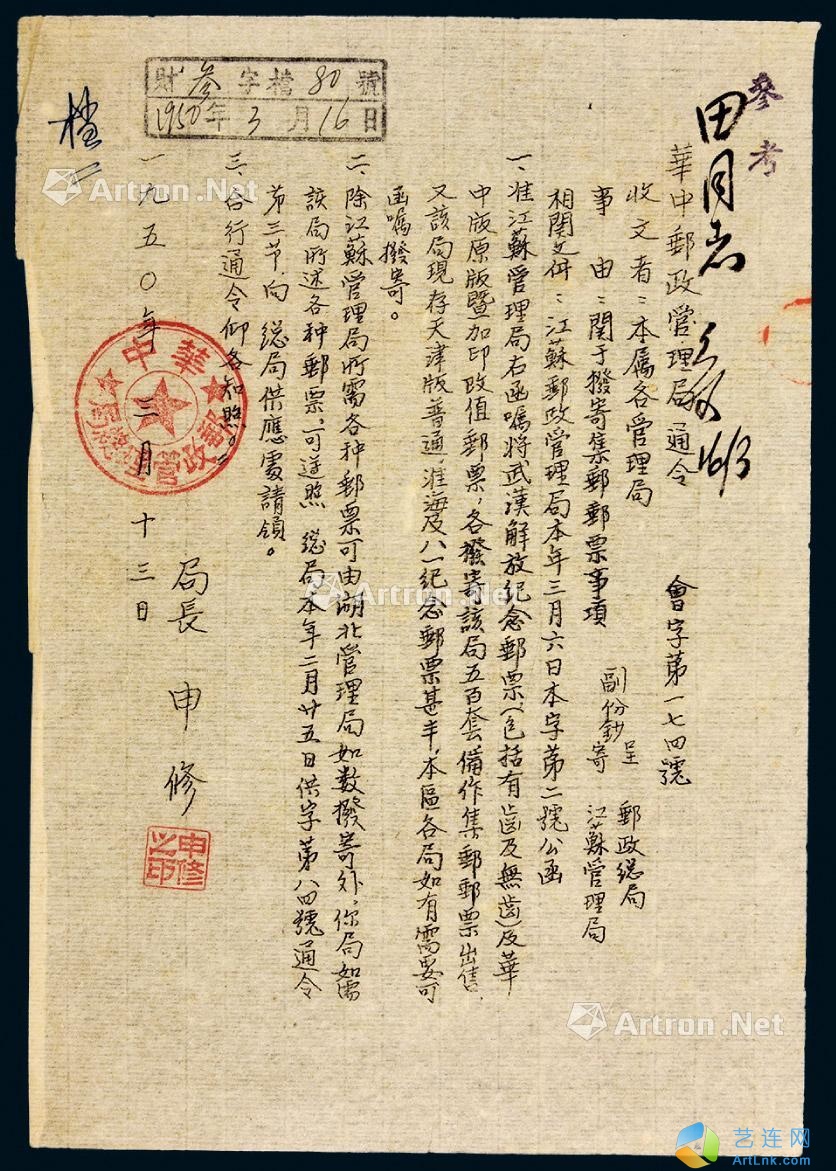 參考
田同志
華中郵政管理局通令
會字第一七四號
收文者：本属各管理局
副份
呈 郵政總局
鈔寄 江蘇管理局
事由：関于撥寄集郵郵票事項
相関文件：江蘇郵政管理局本年三月六日本字第二號公函
一、准江蘇管理局右函嘱將武漢解放紀念郵票（包括有齒及無齒）及華
中版原版暨加印改值郵票，各撥寄該局五百套備作集郵郵票出售，
又該局現存天津版普通，淮海及八一紀念郵票甚丰，本區各局如有需要可
函嘱撥寄。
二、除江蘇管理局所需各种郵票可由湖北管理局如数撥寄外，你局如需
該局所述各种郵票，可逕照 總局本年二月廿五日供字第八四號通令
第三节，向 總局供應處請領。
三、合行通令仰各知照。
局長 申修
申修之印
一九五〇年 三月 十三日
華中郵政管理總局
財參字檔80號
1950年3月16日
檔
Artron.Net
Artron.Net
Artron.Net
艺连网
ArtLnk.com